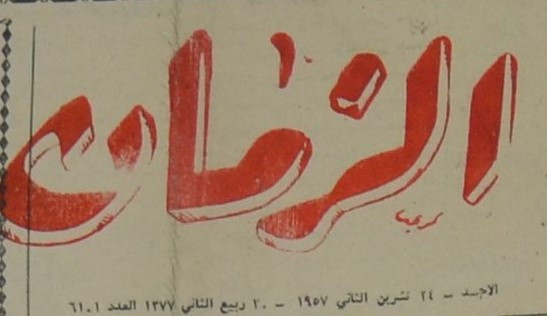 الزمان
الاحـد ــ ٢٤ تشرين الثاني ١٩٥٧ ــ ٢٠ ربيع الثاني ١٣٧٧ العدد ٦١٠١